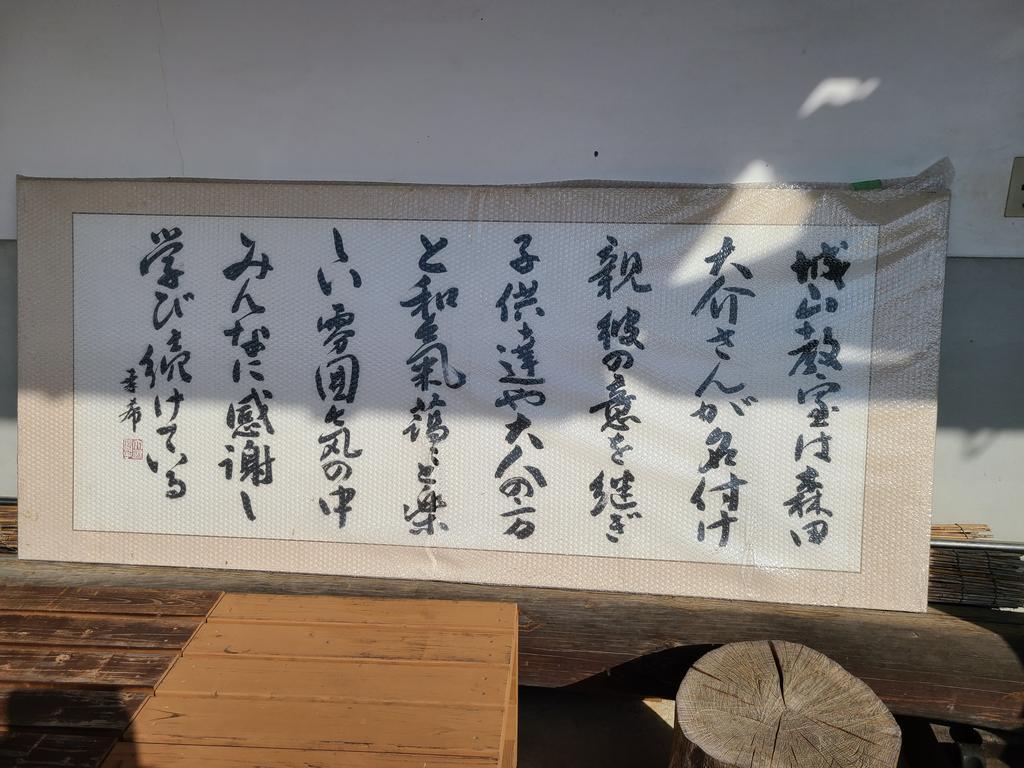 城山教室は森田
大介さんが名付け
親彼の意を継ぎ
子供達や大人の方
と和氣藹々と楽
しい雰囲気の中
みんなに感謝し
学び続けている